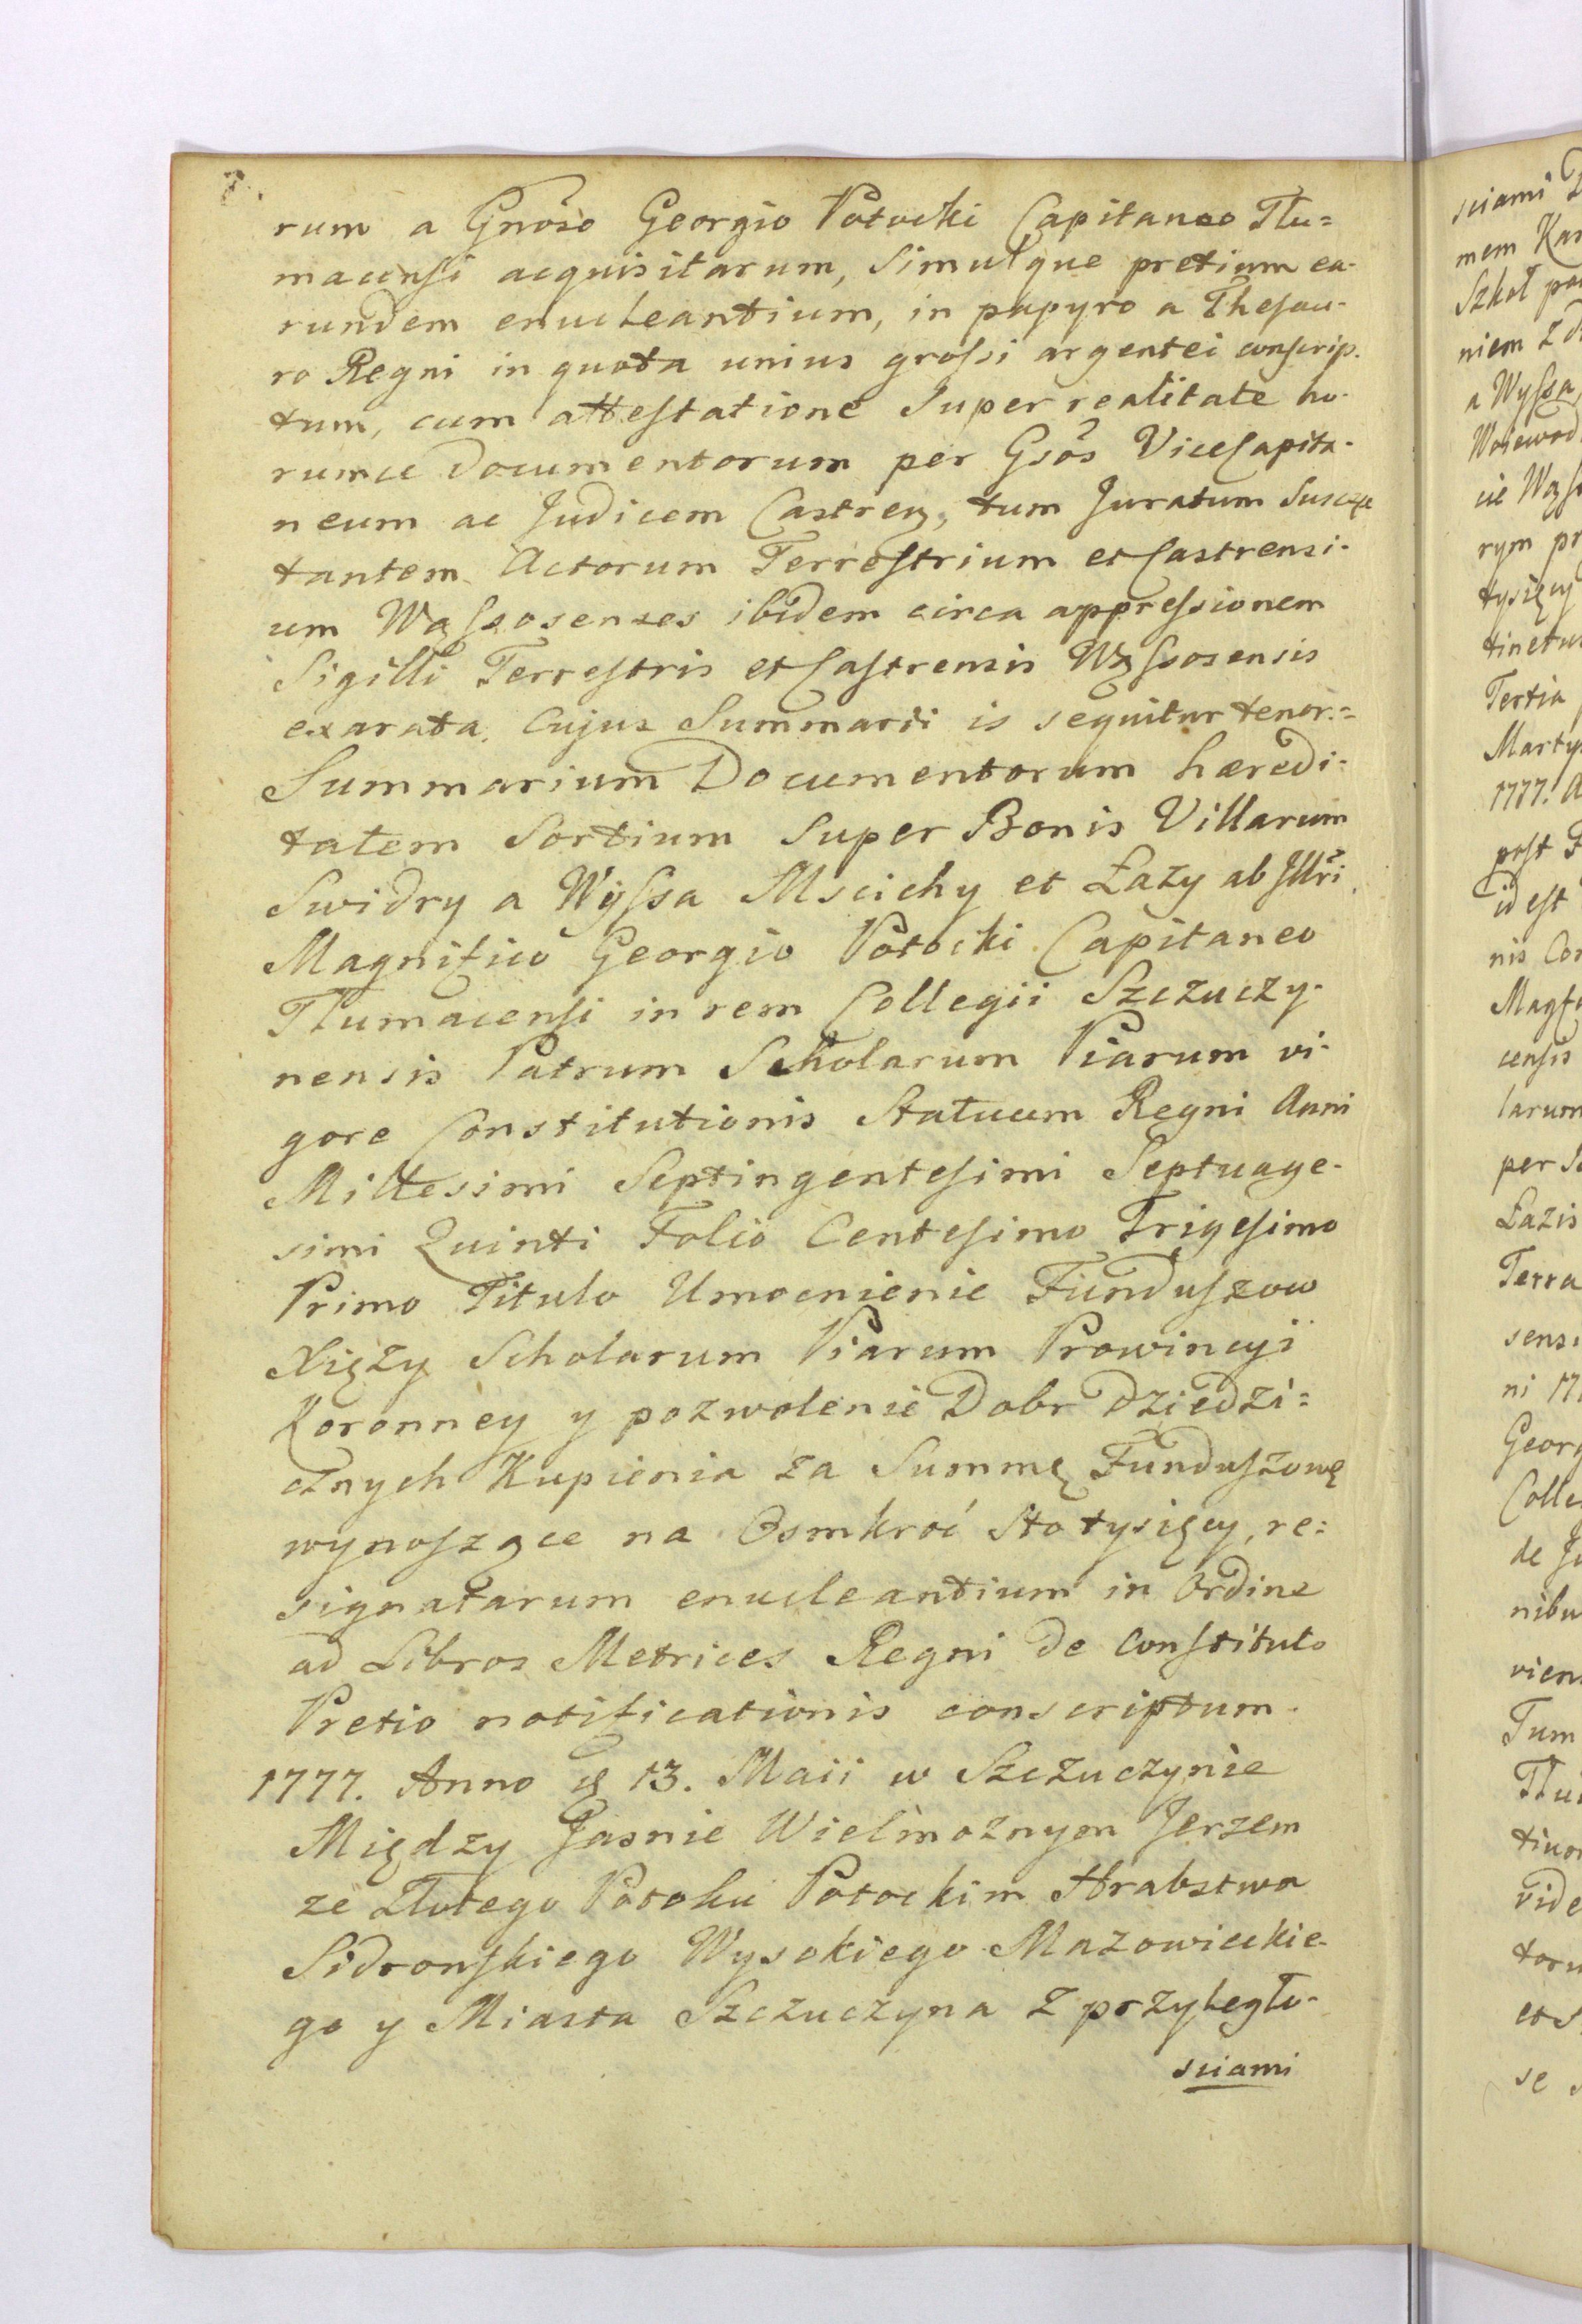 rum a Gnoso Georgio Potocki Capitaneo Tłu=
macensi acquisitarum, Simulque pretium ea-
rundem enucleantium, in papyro a Thesau-
ro Regni in quota unius grossi argentei conscrip-
tum, cum attestatione Super realitate ho-
rumce Documentorum per Gsos ViceCapita-
neum ac Judicem Castren, tum Juratum Suscep
tantem Actorum Terrestrium et Castrensi-
um Wąssosenses ibidem circa appressionem
Sigilli Terrestris et Castrensis Wąssosensis
exarata. Cujus Summarii is sequitur tenor:=
Summarium Documentorum hæredi-
tatem Sortium Super Bonis Villarum
Swidry a Wyssa Mscichy et Łazy ab Illri
Magnifico Georgio Potocki Capitaneo
Tłumacensi in rem Collegii Szczuczy-
nensis Patrum Scholarum Piarum vi-
gore Constitutionis Statuum Regni Anni
Millesimi Septingentesimi Septuage-
simi Quinti Folio Centesimo Trigesimo
Primo Titulo Umocnienie Funduszow
Xięży Scholarum Piarum Prowincyi
Koronney y pozwolenie Dobr Dziedzi=
cznych Kupienia za Summę Funduszowę
wynoszące na Osmkroć Sto tysięcy, re=
signatarum enucleantium in Ordine
ad Libros Metrices Regni de Constituto
Pretio notificationis conscriptum.
1777. Anno 13. Maii w Szczuczynie
Między Jasnie Wielmożnym Jerzem
ze Złotego Potoku Potockim Hrabstwa
Sidronskiego Wysokiego Mazowieckie-
go y Miasta Szczuczyna z przyległo-
sciami
sciami
mem
Szkoł
niem
a Wyssa
rym
Tertia
1777.
post
id est
nis
censis
larum
per
Łazis
Terra
ni
de
Tum
se